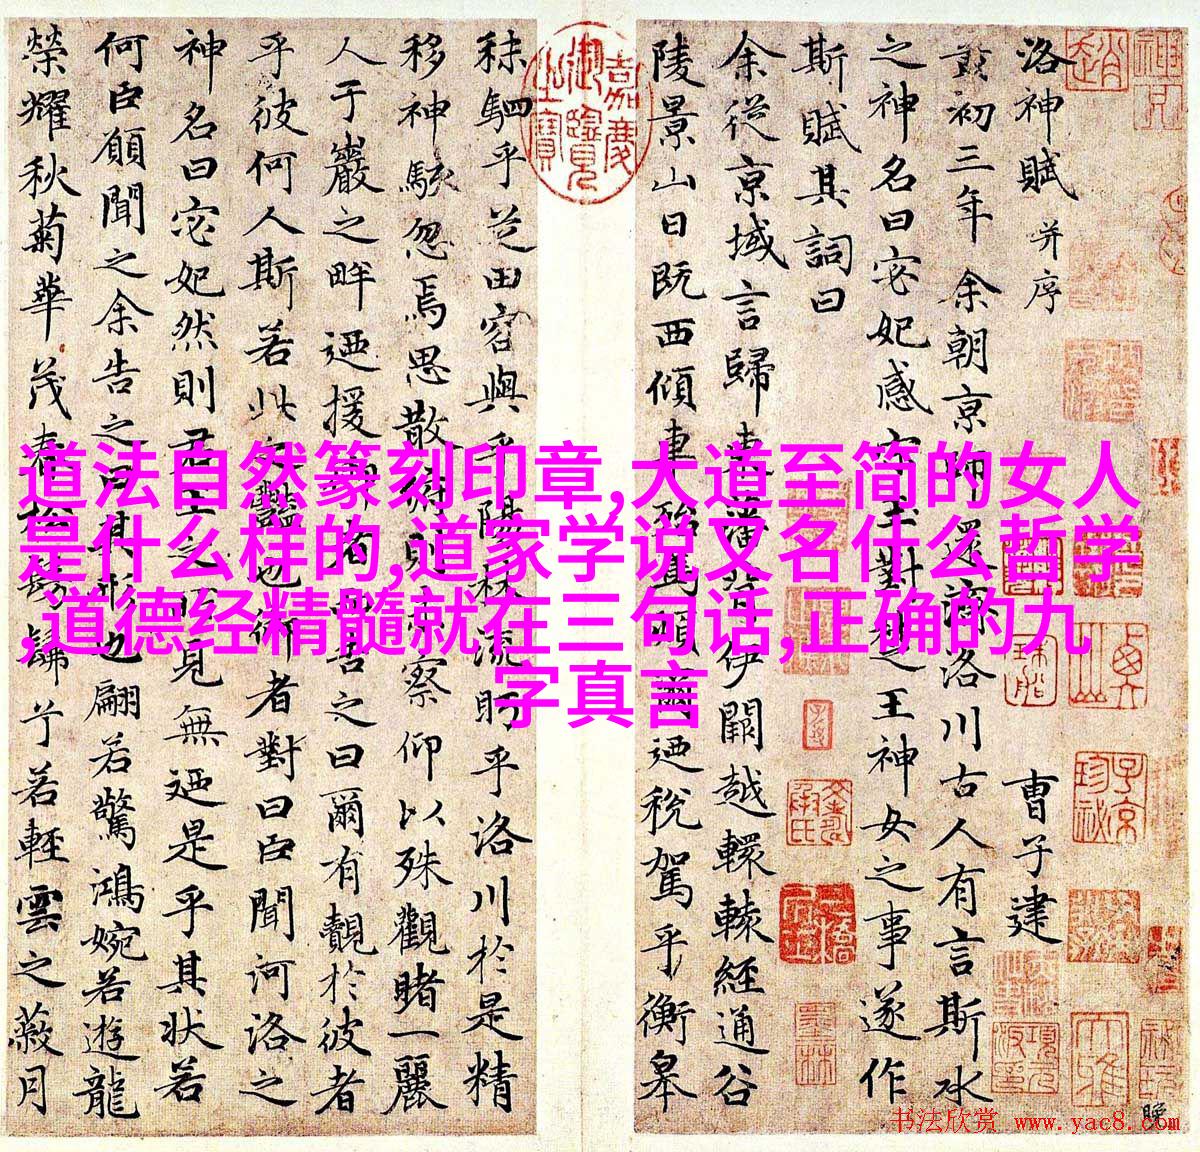 洛神賦 并序 曹子建
黄初三年余朝京師還濟洛川古人有言斯水
之神名曰宓妃感宋玉對楚王神女之事遂作
斯賦其詞曰
余從京域言歸東藩背伊闕越轘轅經通谷
陵景山日既西傾車殆馬煩爾迺稅駕乎衡皋
嘉慶御覽之寶
秣駟乎芝田容與乎陽林流眄乎洛川於是精
移神駭忽焉思散俯則未察仰以殊觀睹一麗
人于巖之畔迺援御者而告之曰爾有覿於彼者
乎彼何人斯若此之豔也御者對曰臣聞河洛之
神名曰宓妃然則君王之所見無迺是乎其狀若
何臣願聞之余告之曰其形也翩若驚鴻婉若遊龍
榮耀秋菊華茂春松髣髴兮若輕雲之蔽月
道法自然篆刻印章,大道至简的女人
是什么样的,道家学说又名什么哲学
,道德经精髓就在三句话,正确的九
字真言
书法欣赏 www.yac8.com